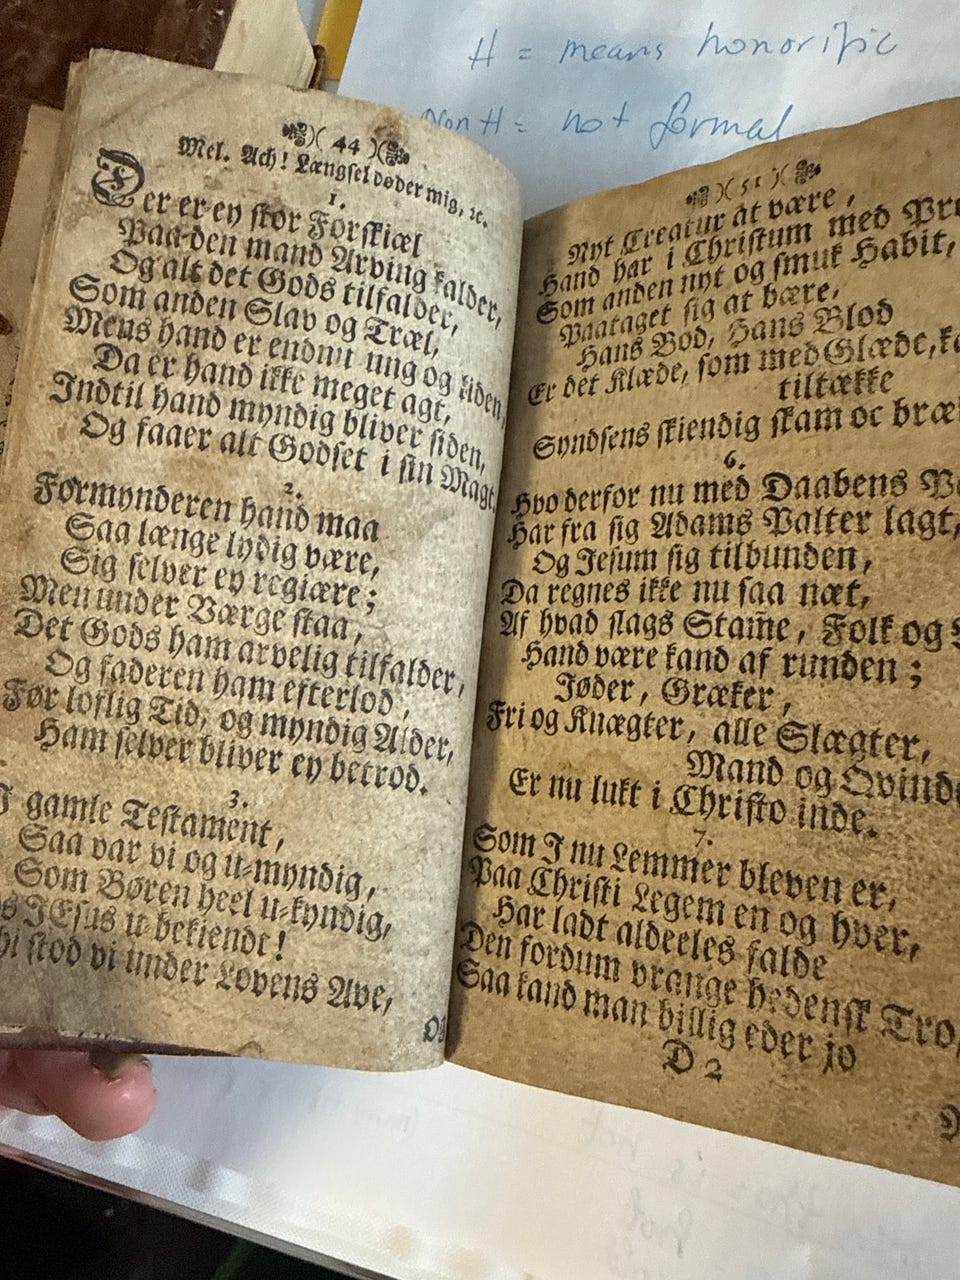 H = means honorific
Non H = not formal
44
Mel. Ach! Længsel døder mig, ꝛc.
1.
Der er en stor Forskiæl
Paa den mand Arving kalder,
Og alt det Gods tilfalder,
Som anden Slav og Træl,
Mens hand er endnu ung og liden,
Da er hand ikke meget agt,
Indtil hand myndig bliver siden,
Og faaer alt Godset i sin Magt.
2.
Formynderen hand maa
Saa længe lydig være,
Sig selver ey regiære;
Men under Værge staa,
Det Gods ham arvelig tilfalder,
Og faderen ham efterlod,
Før loflig Tid, og myndig Alder,
Ham selver bliver ey betrod.
3.
I gamle Testament,
Saa var vi og u-myndig,
Som Børen heel u-kyndig,
JEsus u-bekiendt!
stod vi under Lovens Ave,
Og
51
Nyt Creatur at være,
Hand har i Christum med
Som anden nyt og smuk Habit,
Paataget sig at bære,
Hans Bod, Hans Blod
Er det Klæde, som med Glæde,
tiltække
Syndsens skiendig skam oc
6.
Hvo derfor nu med Daabens
Har fra sig Adams Palter lagt,
Og Jesum sig tilbunden,
Da regnes ikke nu saa næt,
Af hvad slags Stam̅e, Folk og
Hand være kand af runden;
Jøder, Græker,
Fri og Knægter, alle Slægter,
Mand og
Er nu lukt i Christo inde.
7.
Som I nu Lemmer bleven er,
Paa Christi Legem en og hver,
Har ladt aldeeles falde
Den fordum vrange hedensk Tro,
Saa kand man billig eder jo
D 2